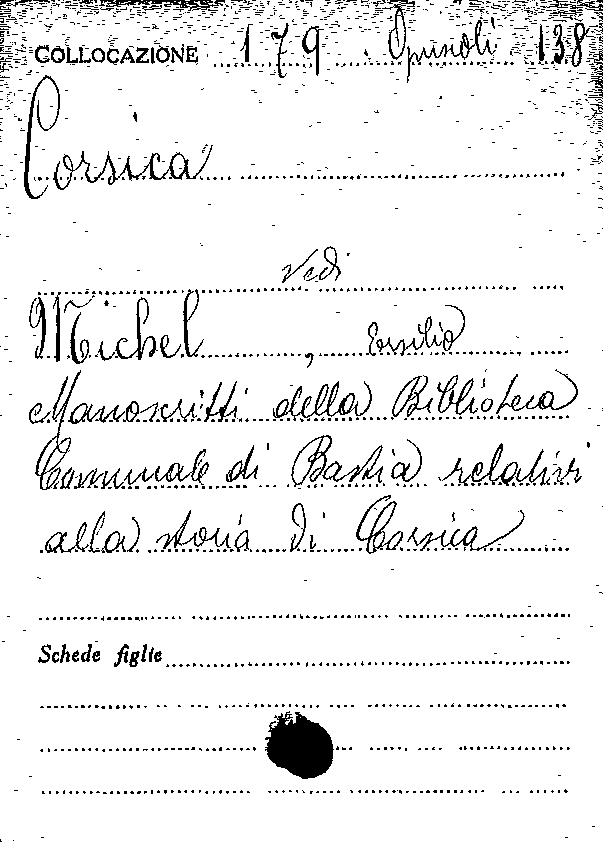 COLLOCAZIONE 179. Opuscoli 138
Corsica
Vedi
Michel, Ersilio
Manoscritti della Biblioteca
Comunale di Bastia relativi
alla storia di Corsica
Schede figlie